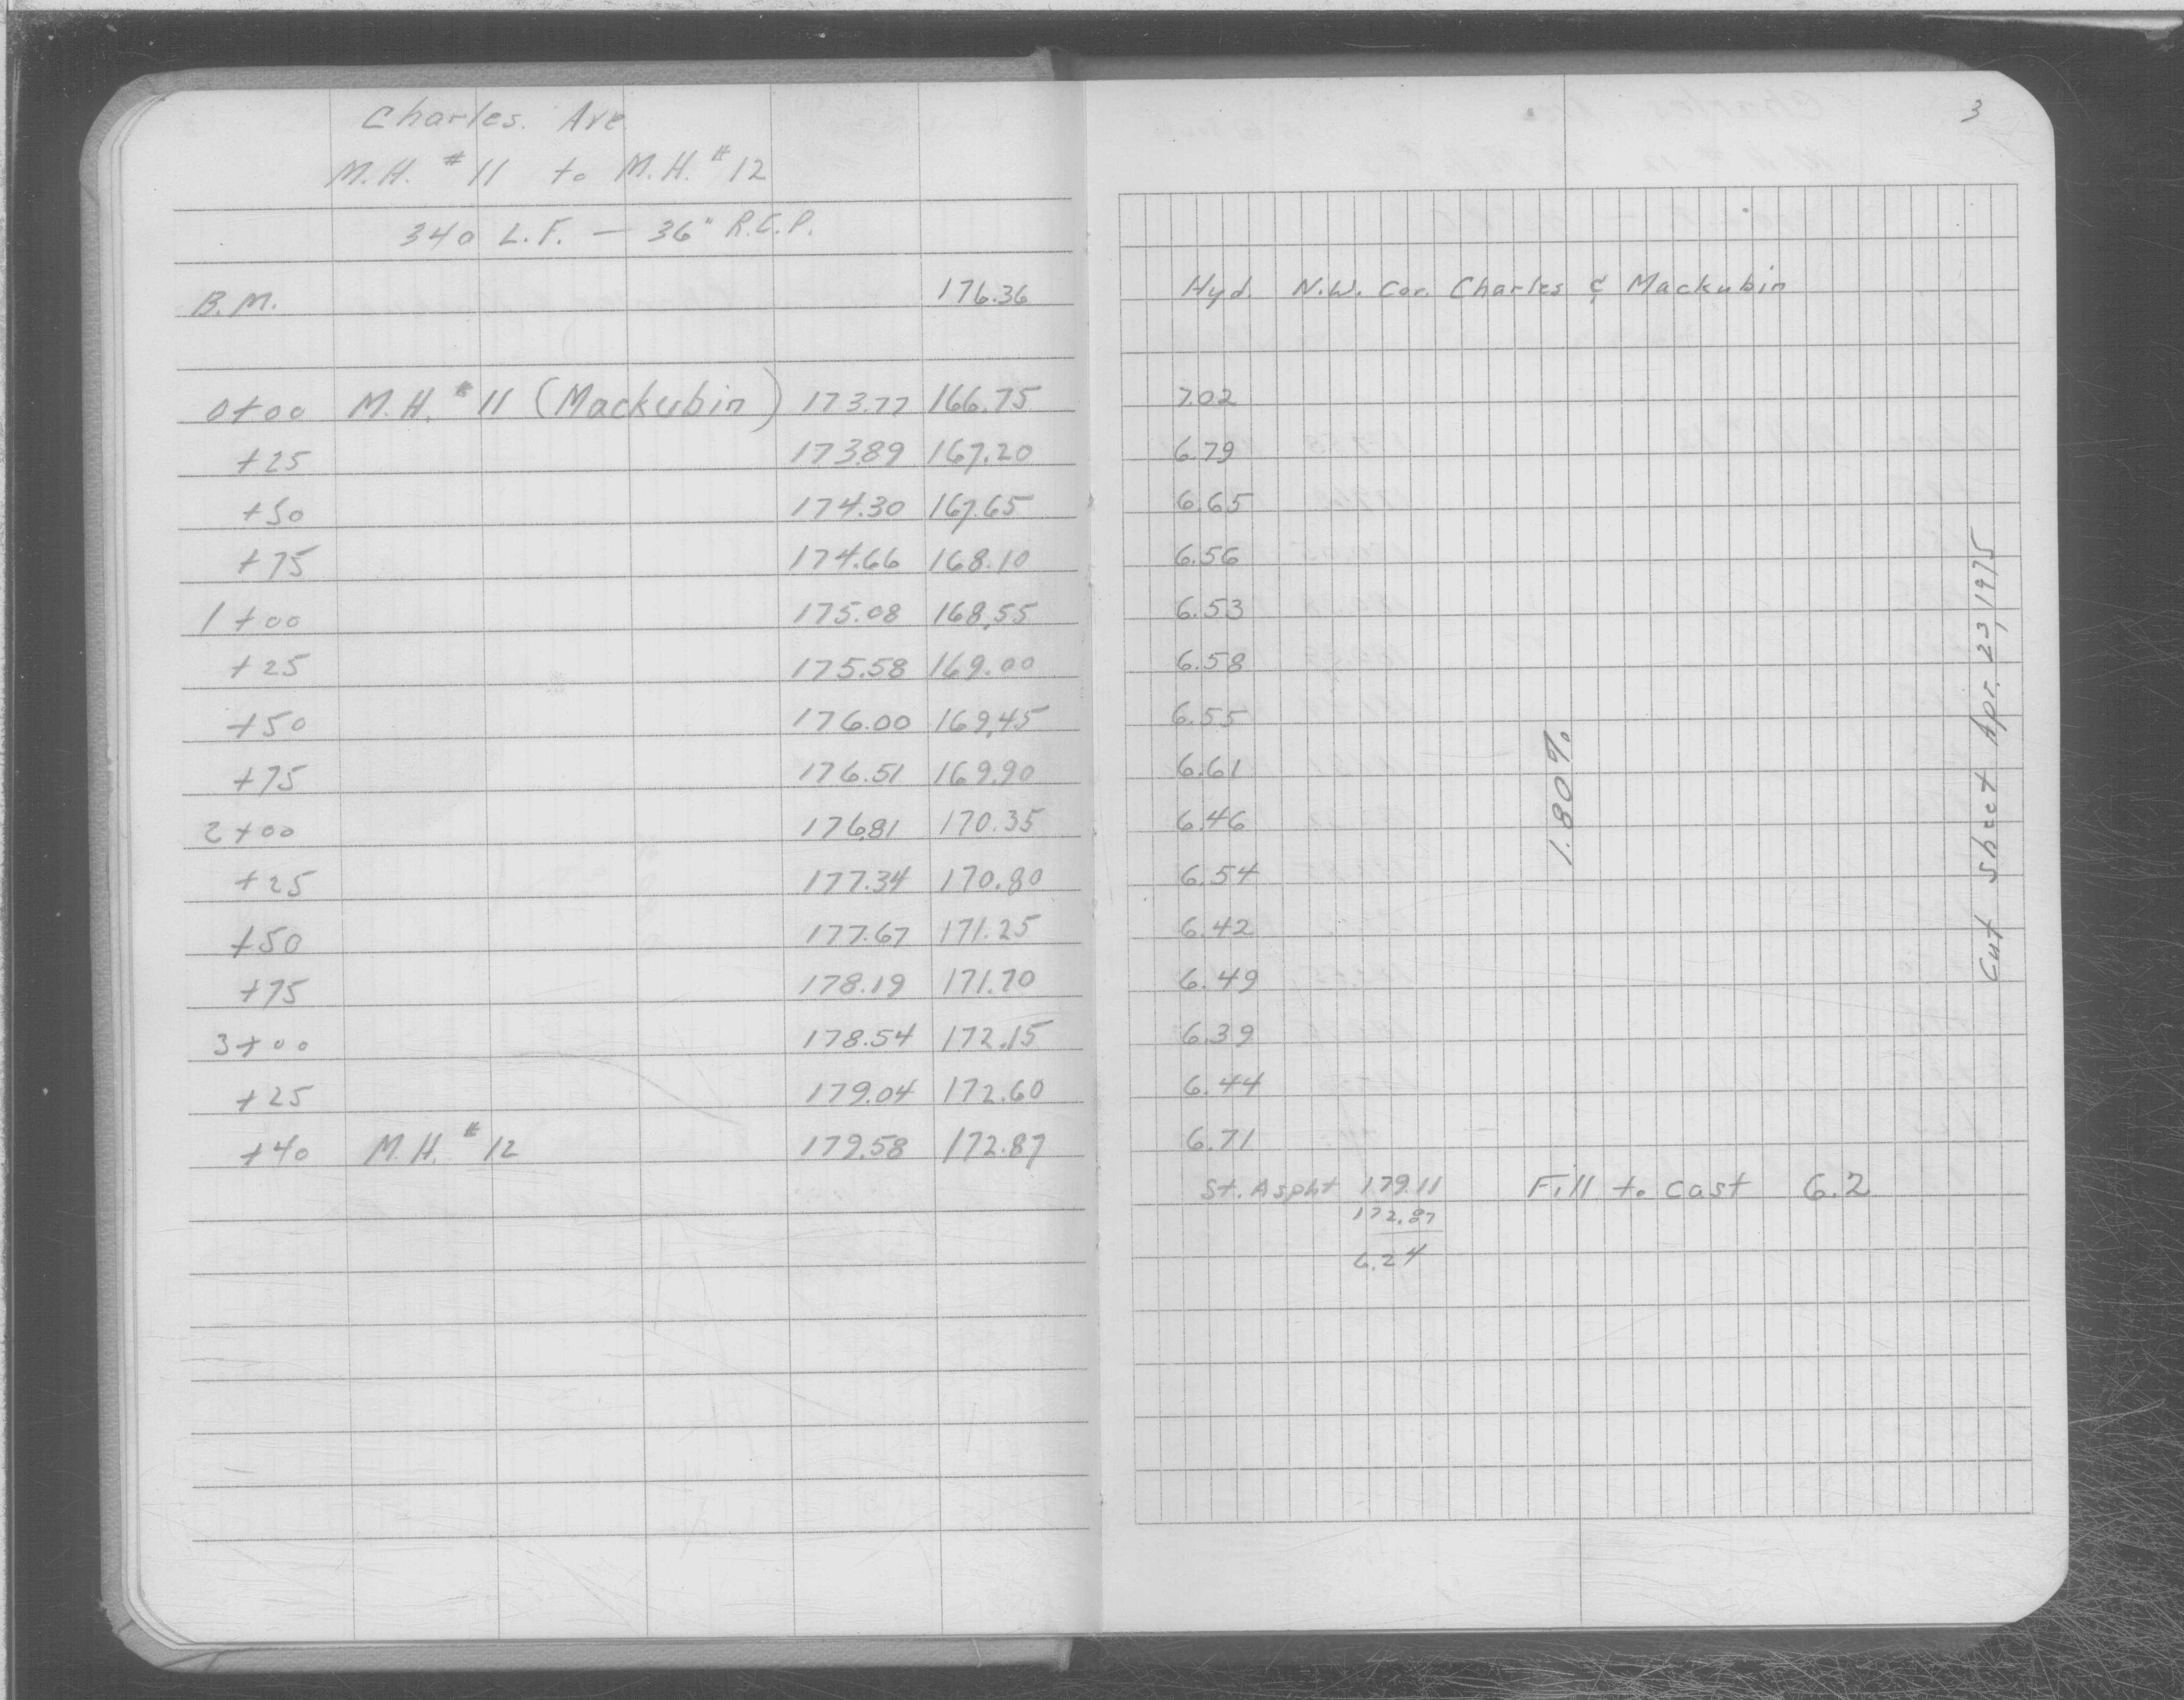 Charles. Ave
M.H. #11 to M.H. #12
340 L.F. — 36" R.C.P.
B.M. 176.36
0+00 M.H. #11 (Mackubin) 173.77 166.75
+25 173.89 167.20
+50 174.30 167.65
+75 174.66 168.10
1+00 175.08 168.55
+25 175.58 169.00
+50 176.00 169.45
+75 176.51 169.90
2+00 176.81 170.35
+25 177.34 170.80
+50 177.67 171.25
+75 178.19 171.70
3+00 178.54 172.15
+25 179.04 172.60
+40 M.H. #12 179.58 172.87
3
Hyd. N.W. Cor. Charles & Mackubin
7.02
6.79
6.65
6.56
6.53
6.58
6.55
6.61
6.46
6.54
6.42
6.49
6.39
6.44
6.71
St. Aspht 179.11 Fill to cast 6.2
172.87
6.24
1.80%
Cut Sheet Apr. 23, 1975